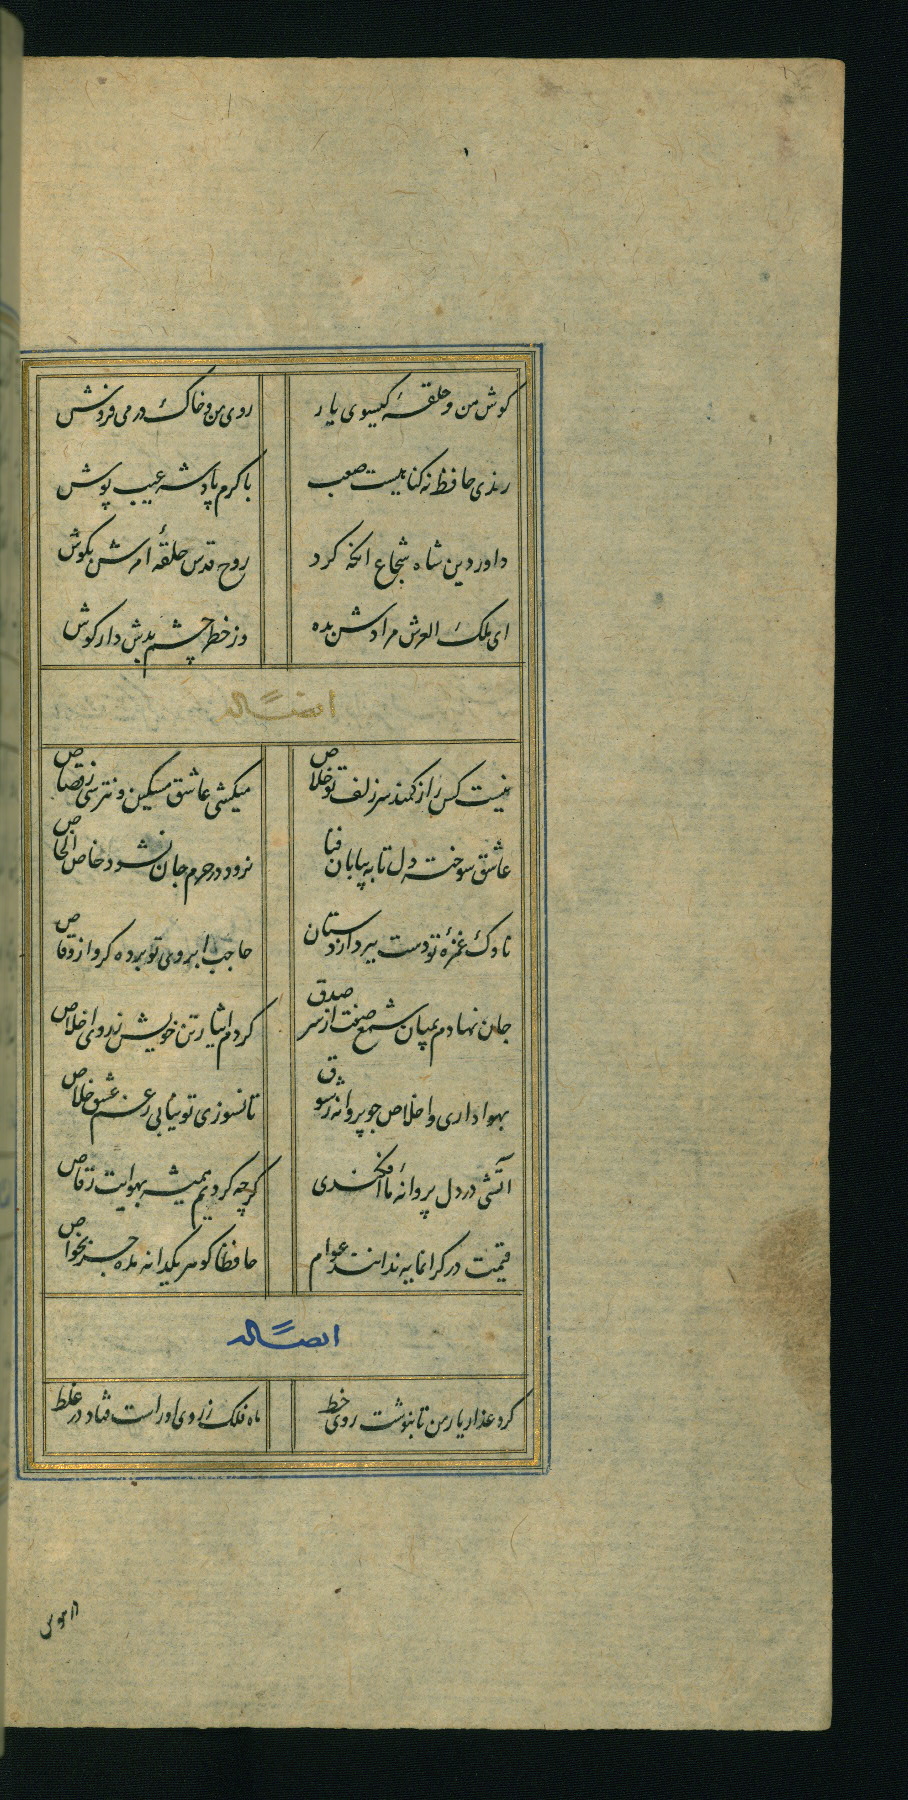 گوش من و حلقهٔ گیسوی یار
روی من و خاک در می فروش
رندی حافظ نه گناهیست صعب
با کرم پادشه عیب پوش
داور دین شاه شجاع انکه کرد
روح قدس حلقهٔ امرش بگوش
ای ملک العرش مرادش بده
وز خطر چشم بدش دار گوش
ایضاً له
نیست کس را ز کمند سر زلف تو خلاص
میکشی عاشق مسکین و نترسی ز قصاص
عاشق سوخته دل تا به بیابان فنا
نرود در حرم جان نشود خاص الخاص
ناوک غمزهٔ تو دست ببرد از دستان
حاجب ابروی تو برده گرو از وقاص
جان نهادم بمیان شمع صفت از سر صدق
کردم ایثار تن خویش ز روی اخلاص
بهواداری و اخلاص چو پروانه ز شوق
تا نسوزی تو نیابی ز غم عشق خلاص
آتشی در دل پروانهٔ ما افکندی
گرچه کردیم همیشه بهوایت رقاص
قیمت در گرانمایه ندانند عوام
حافظا گوهر یکدانه مده جز بخواص
ایضاً له
گرد عذار یار من تا بنوشت روی خط
ماه فلک ز روی او راست فتاد در غلط